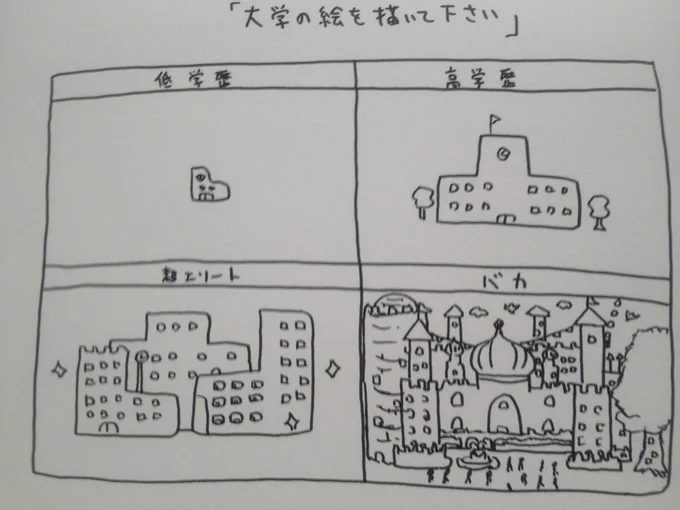 「大学の絵を描いて下さい」
低学歴
高学歴
超エリート
バカ